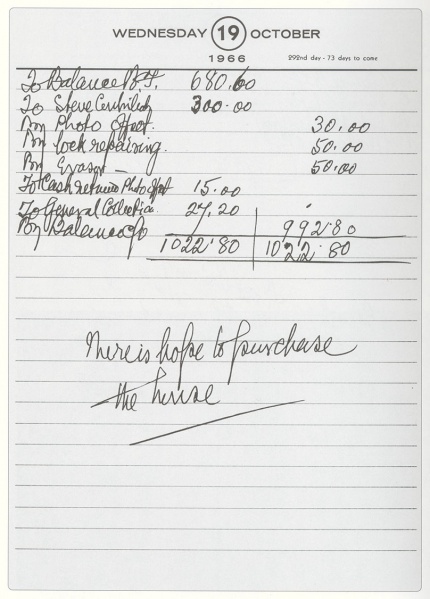 WEDNESDAY 19 OCTOBER
1966
292nd day - 73 days to come
To Balance B.F. 680.60
To Steve 300.00
By Photo Offset. 30.00
By lock repairing. 50.00
By 50.00
To Cash Photo 15.00
To General Collection. 27.20
By Balance 992.80
1022.80 1022.80
There is hope to purchase
the house